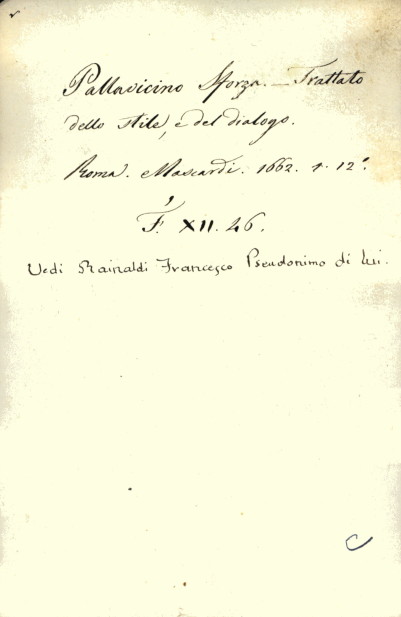 Pallavicino Sforza. — Trattato
dello stile, e del dialogo.
Roma. Mascardi. 1662. 1. 12°.
F. XII. 26.
Vedi Rainaldi Francesco Pseudonimo di lui.
C